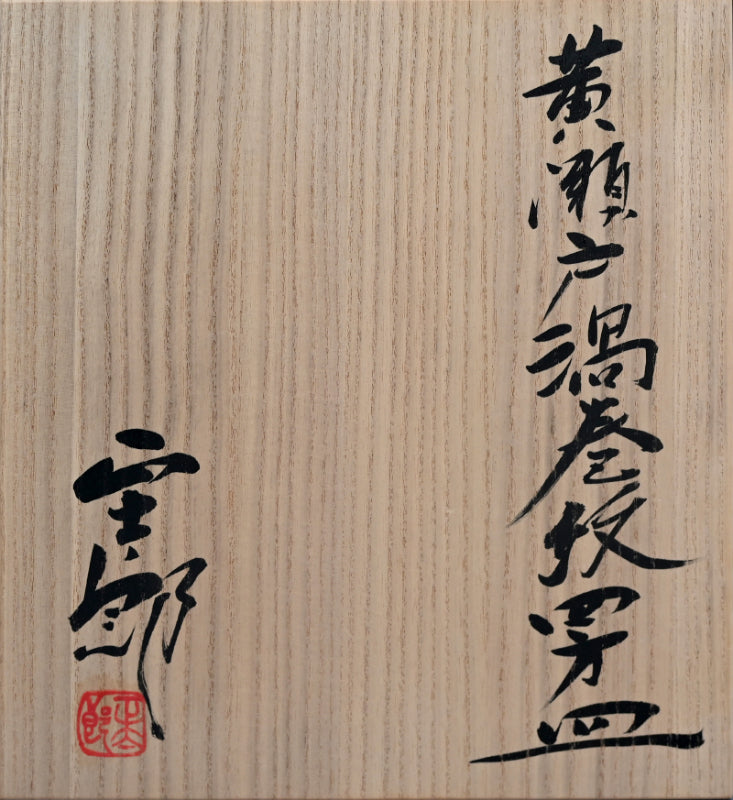 黄瀬戸渦巻紋四方皿
郎